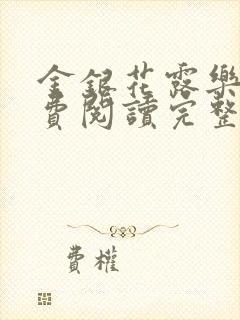 金銀花露樂
費閱讀完整
費權